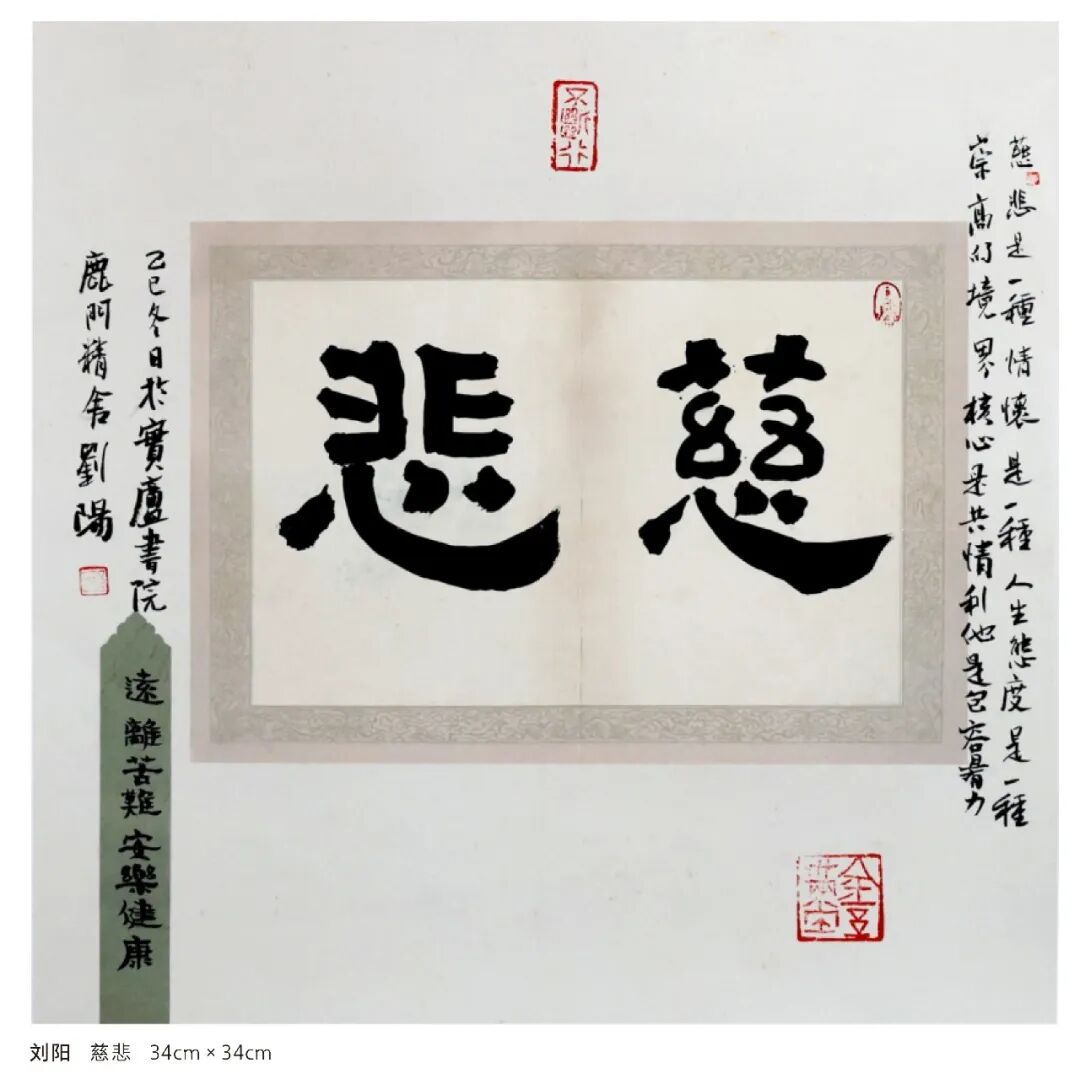 慈悲
慈悲是一種情懷是一種人生態度是一種
崇高的境界核心是共情利他是包容是力
乙巳冬日於實廬書院
鹿門精舍劉陽
遠離苦難安樂健康
不斷
刘阳 慈悲 34cm × 34cm